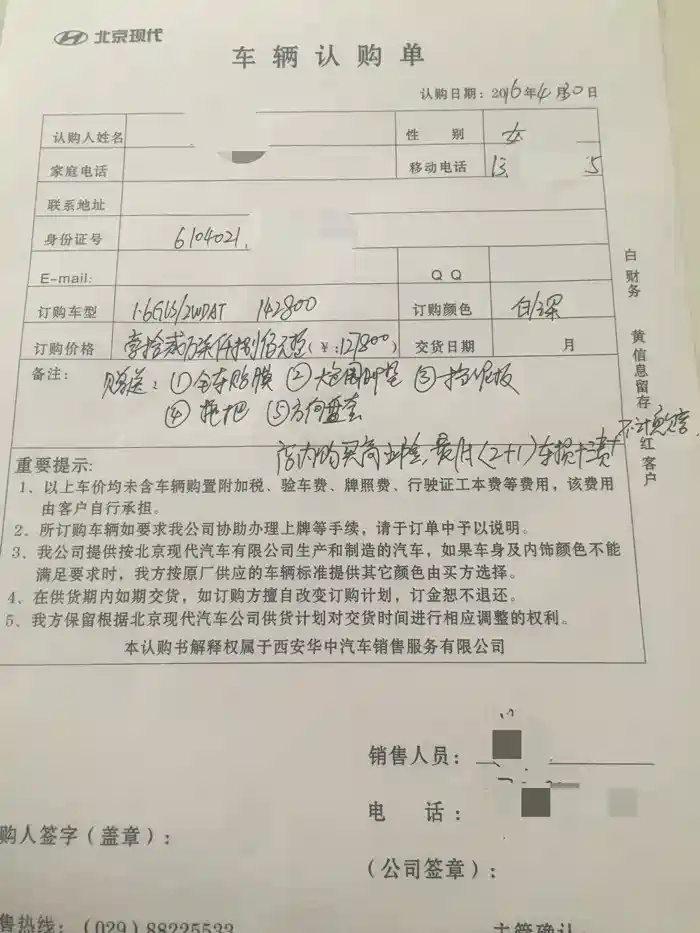 北京现代
车辆认购单
认购日期：2016年4月30日
认购人姓名
性 别 女
家庭电话
移动电话 13 5
联系地址
身份证号 6104021
E-mail:
Q Q
订购车型 1.6GLS/2WDAT 142800
订购颜色 白/深
订购价格 壹拾贰万柒仟捌佰元整(￥:127800)
交货日期 月
备注： 赠送：①全车贴膜 ②大包围脚垫 ③挡泥板
④拖把 ⑤方向盘套
店内购买商业险,费用(2+1)车损+三责+不计免赔.
白 财务
黄 信息留存
红 客户
重要提示:
1、以上车价均未含车辆购置附加税、验车费、牌照费、行驶证工本费等费用，该费用
由客户自行承担。
2、所订购车辆如要求我公司协助办理上牌等手续，请于订单中予以说明。
3、我公司提供按北京现代汽车有限公司生产和制造的汽车，如果车身及内饰颜色不能
满足要求时，我方按原厂供应的车辆标准提供其它颜色由买方选择。
4、在供货期内如期交货，如订购方擅自改变订购计划，订金恕不退还。
5、我方保留根据北京现代汽车公司供货计划对交货时间进行相应调整的权利。
本认购书解释权属于西安华中汽车销售服务有限公司
销售人员：
电 话：
购人签字（盖章）：
（公司签章）：
售热线：（029）88225533
主管确认：